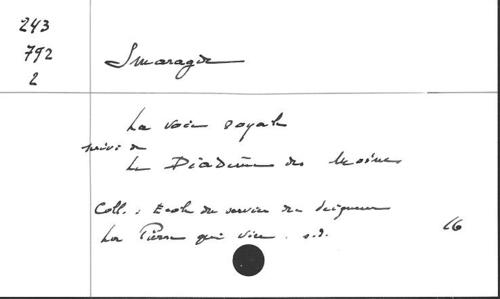 243
792
2
Smaragde
La voie royale
suivi de
Le Diadème des Moines
Coll. : Ecole du service du Seigneur
La Pierre qui vire. s.d.
16